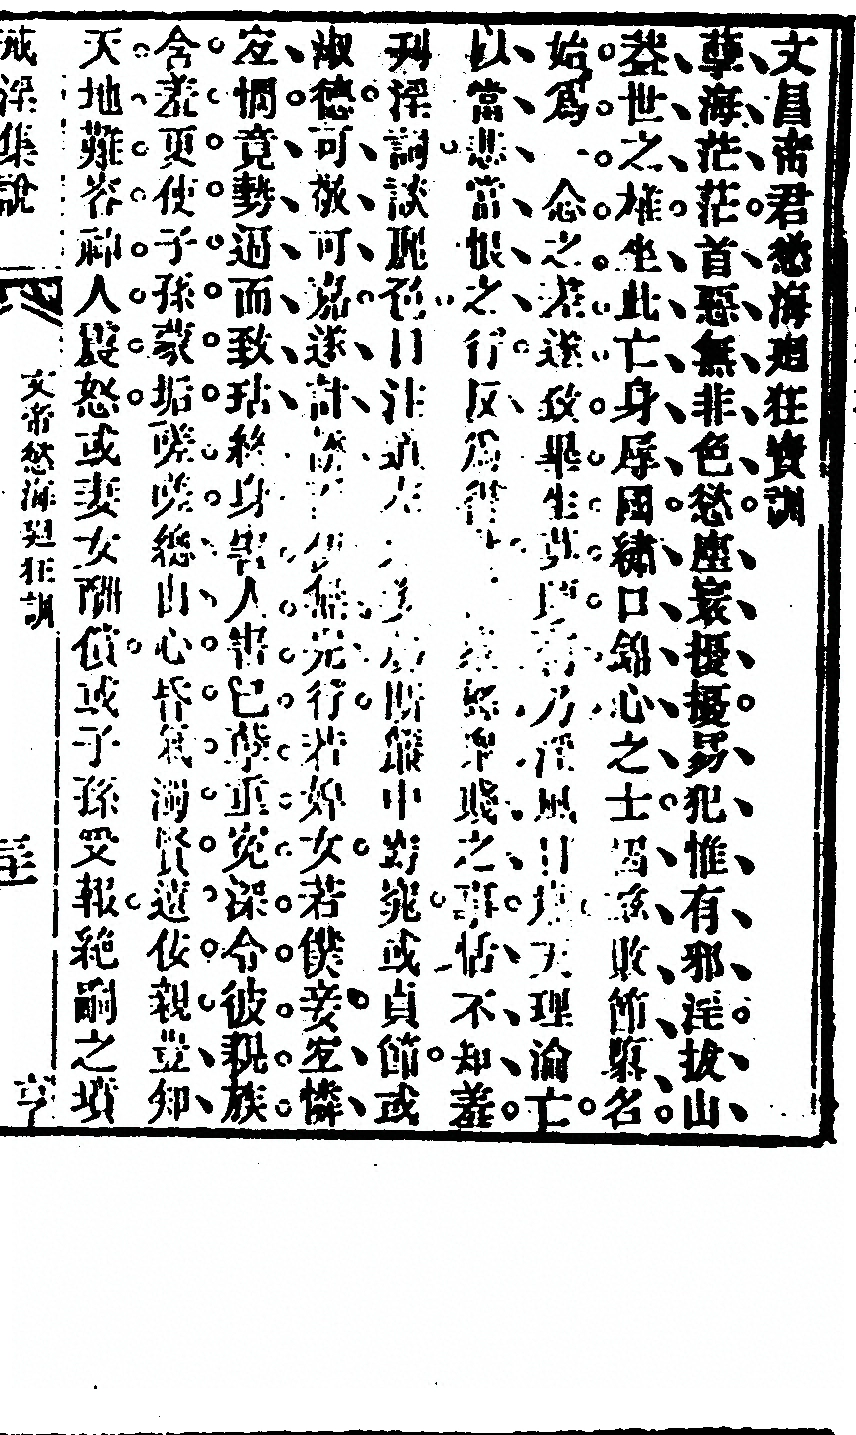 文昌帝君慾海廻狂寶訓
孽海茫茫首惡無非色慾塵寰擾擾易犯惟有邪淫拔山
葢世之雄坐此亡身辱國繡口錦心之士因茲敗節隳名
始爲一念之差遂致畢生莫贖何乃淫風日熾天理淪亡
以當悲當恨之行反爲得計 衆賤之事恬不知羞
刋淫詞談麗色目注道左 腸斷簾中窈窕或貞節或
淑德可敬可嘉遂計誘 無完行若婢女若僕妾宜憐
宜憫竟勢逼而致玷終身害人害已孽重冤深令彼親族
含羞更使子孫蒙垢嗟嗟總由心昏氣濁賢遠佞親豈知
天地難容神人震怒或妻女酬償或子孫受報絶嗣之墳
戒淫集說
文帝慾海廻狂訓
亨